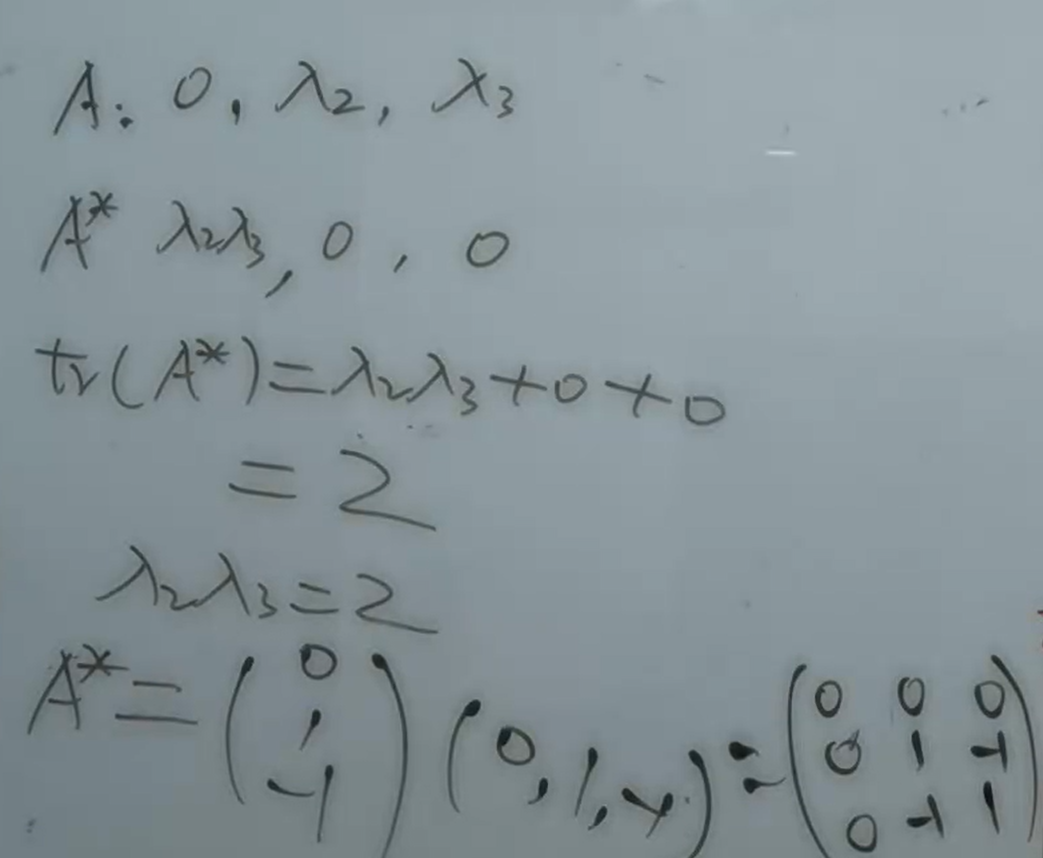 A: 0, λ₂, λ₃
A* λ₂λ₃, 0, 0
tr(A*)=λ₂λ₃+0+0
=2
λ₂λ₃=2
A*=(0 1 -1)(0,1,-1)=(0 0 0 0 1 -1 0 -1 1)